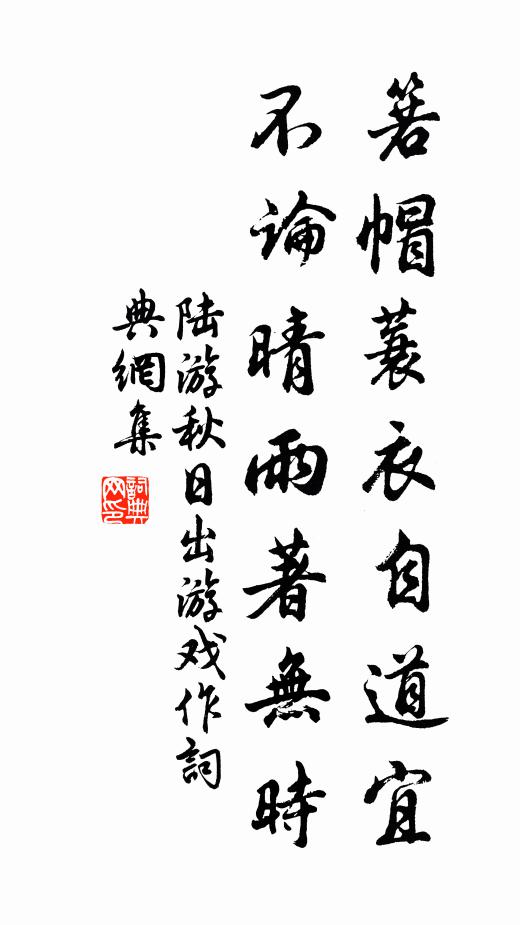 箬帽蓑衣自道宜
不論晴雨著無時
陆游秋日出游戏作詞
典網集
詞典网印